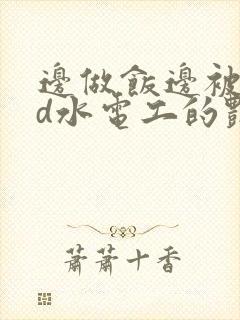 邊做飯邊被
d水電工的
蕭蕭十香